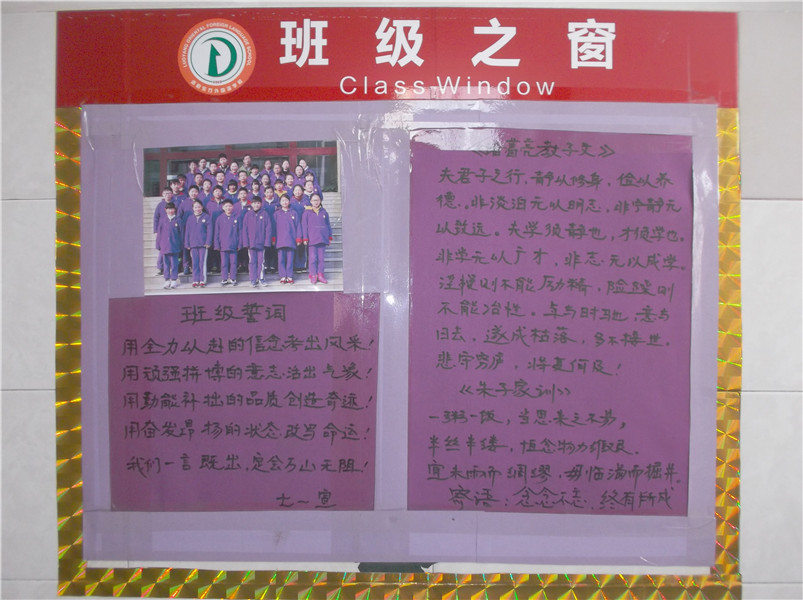 班级之窗
Class Window
班级誓词
用全力以赴的信念考出风采！
用顽强拼博的意志活出气象！
用勤能补拙的品质创造奇迹！
用奋发昂扬的状态改写命运！
我们一言既出，定会万山无阻！
七一宣
《诸葛亮教子文》
夫君子之行，静以修身，俭以养
德。非淡泊无以明志，非宁静无
以致远。夫学须静也，才须学也。
非学无以广才，非志无以成学。
淫慢则不能励精，险躁则
不能冶性。年与时驰，意与
日去，遂成枯落，多不接世。
悲守穷庐，将复何及！
《朱子家训》
一粥一饭，当思来之不易，
半丝半缕，恒念物力维艰。
宜未雨而绸缪，毋临渴而掘井。
寄语：念念不忘，终有所成